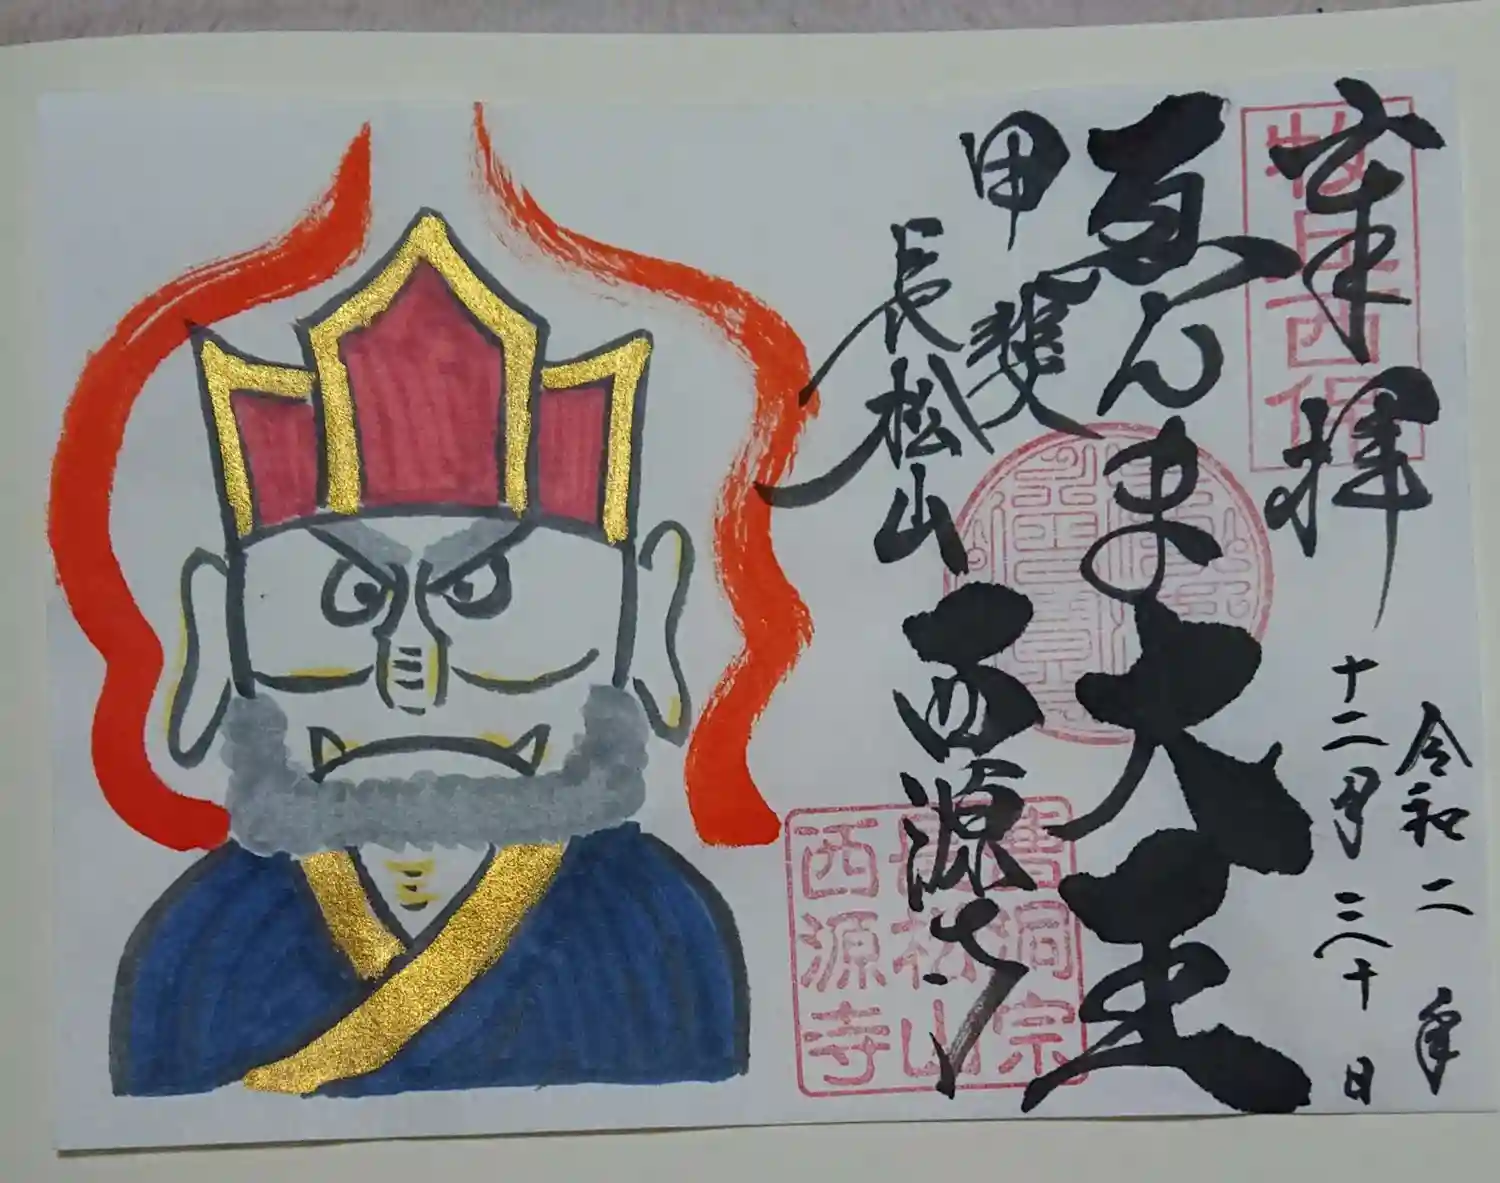 奉拝
令和二年
十二月三十日
ゑんま大王
甲斐
長松山
西源寺
曹洞宗
長松山
西源寺